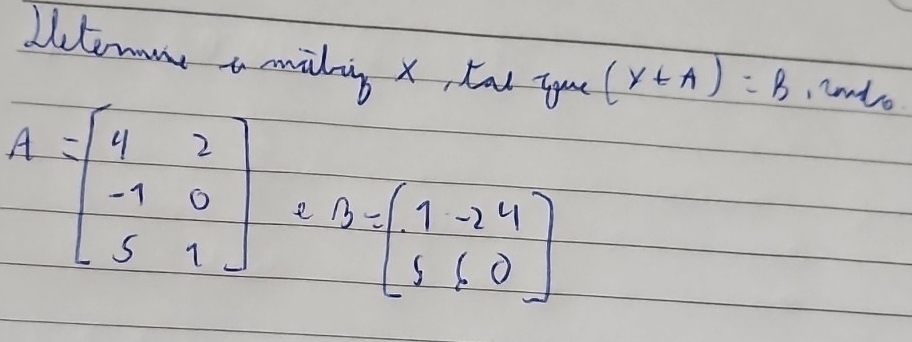 Determine a matriz X, tal que (X + A) = B, sendo
A = [4 2
-1 0
5 1] e B = [1 -2 4
5 6 0]